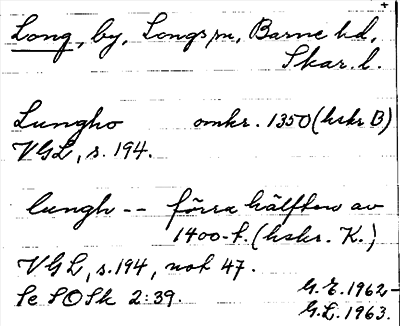 Long, by, Longs sn, Barne hd,
Skar. l.
Lungho omkr. 1350 (hskr B)
VGL, s. 194.
lungh -- förra hälften av
1400-t. (hskr. K.)
VGL, s. 194, not 47.
Se SOSk 2:39.
G.E. 1962-
G.L. 1963.